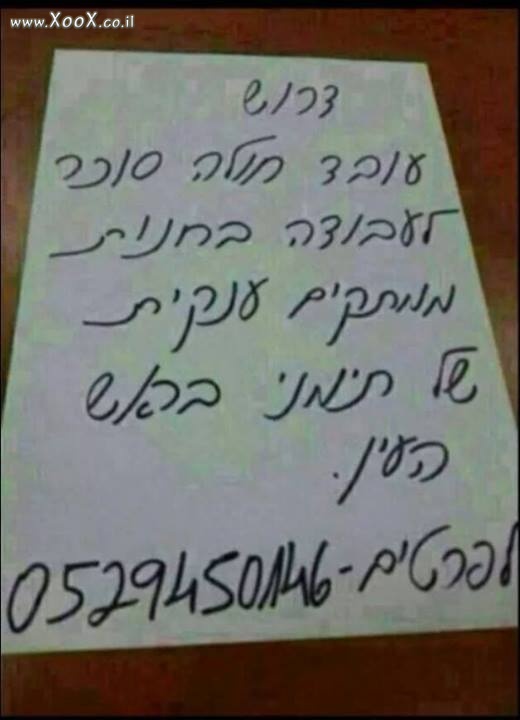 www.XooX.co.il
דרוש
עובד חולה סוכר
לעבודה בחנות
ממתקים ענקית
של תימני בראש
העין.
לפרטים-0529450146